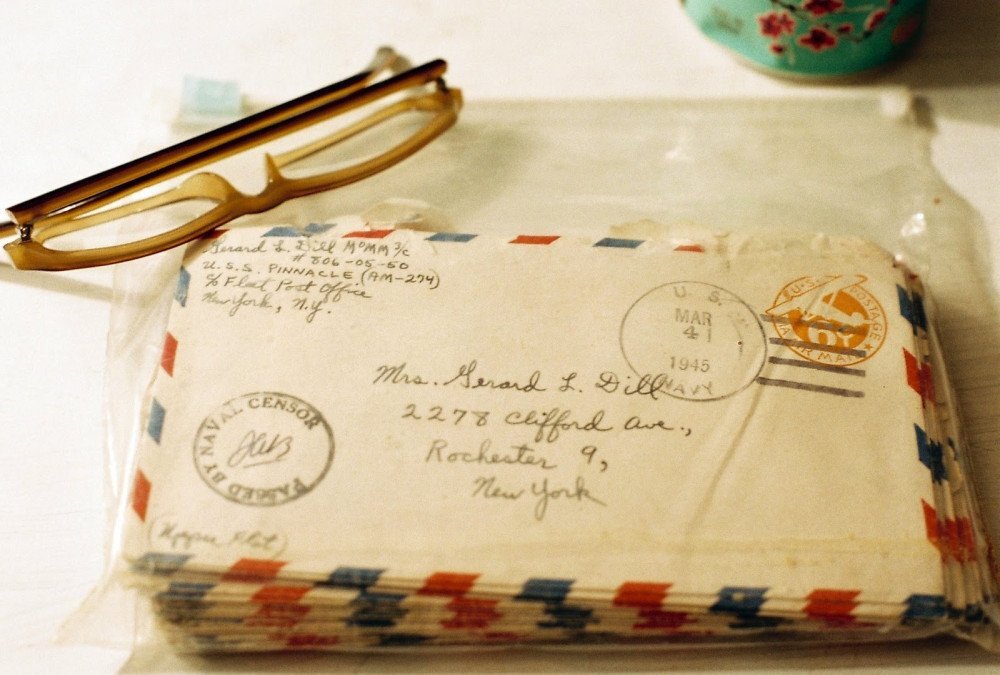 Gerard L. Dill MoMM 3/c
# 806-05-60
U.S.S. PINNACLE (AM-274)
c/o Fleet Post Office
New York, N.Y.
U.S.
MAR
4
1945
NAVY
U.S. POSTAGE
6¢
VIA AIR MAIL
Mrs. Gerard L. Dill
2278 Clifford Ave.,
Rochester 9,
New York
PASSED BY NAVAL CENSOR
(Upper Flat)